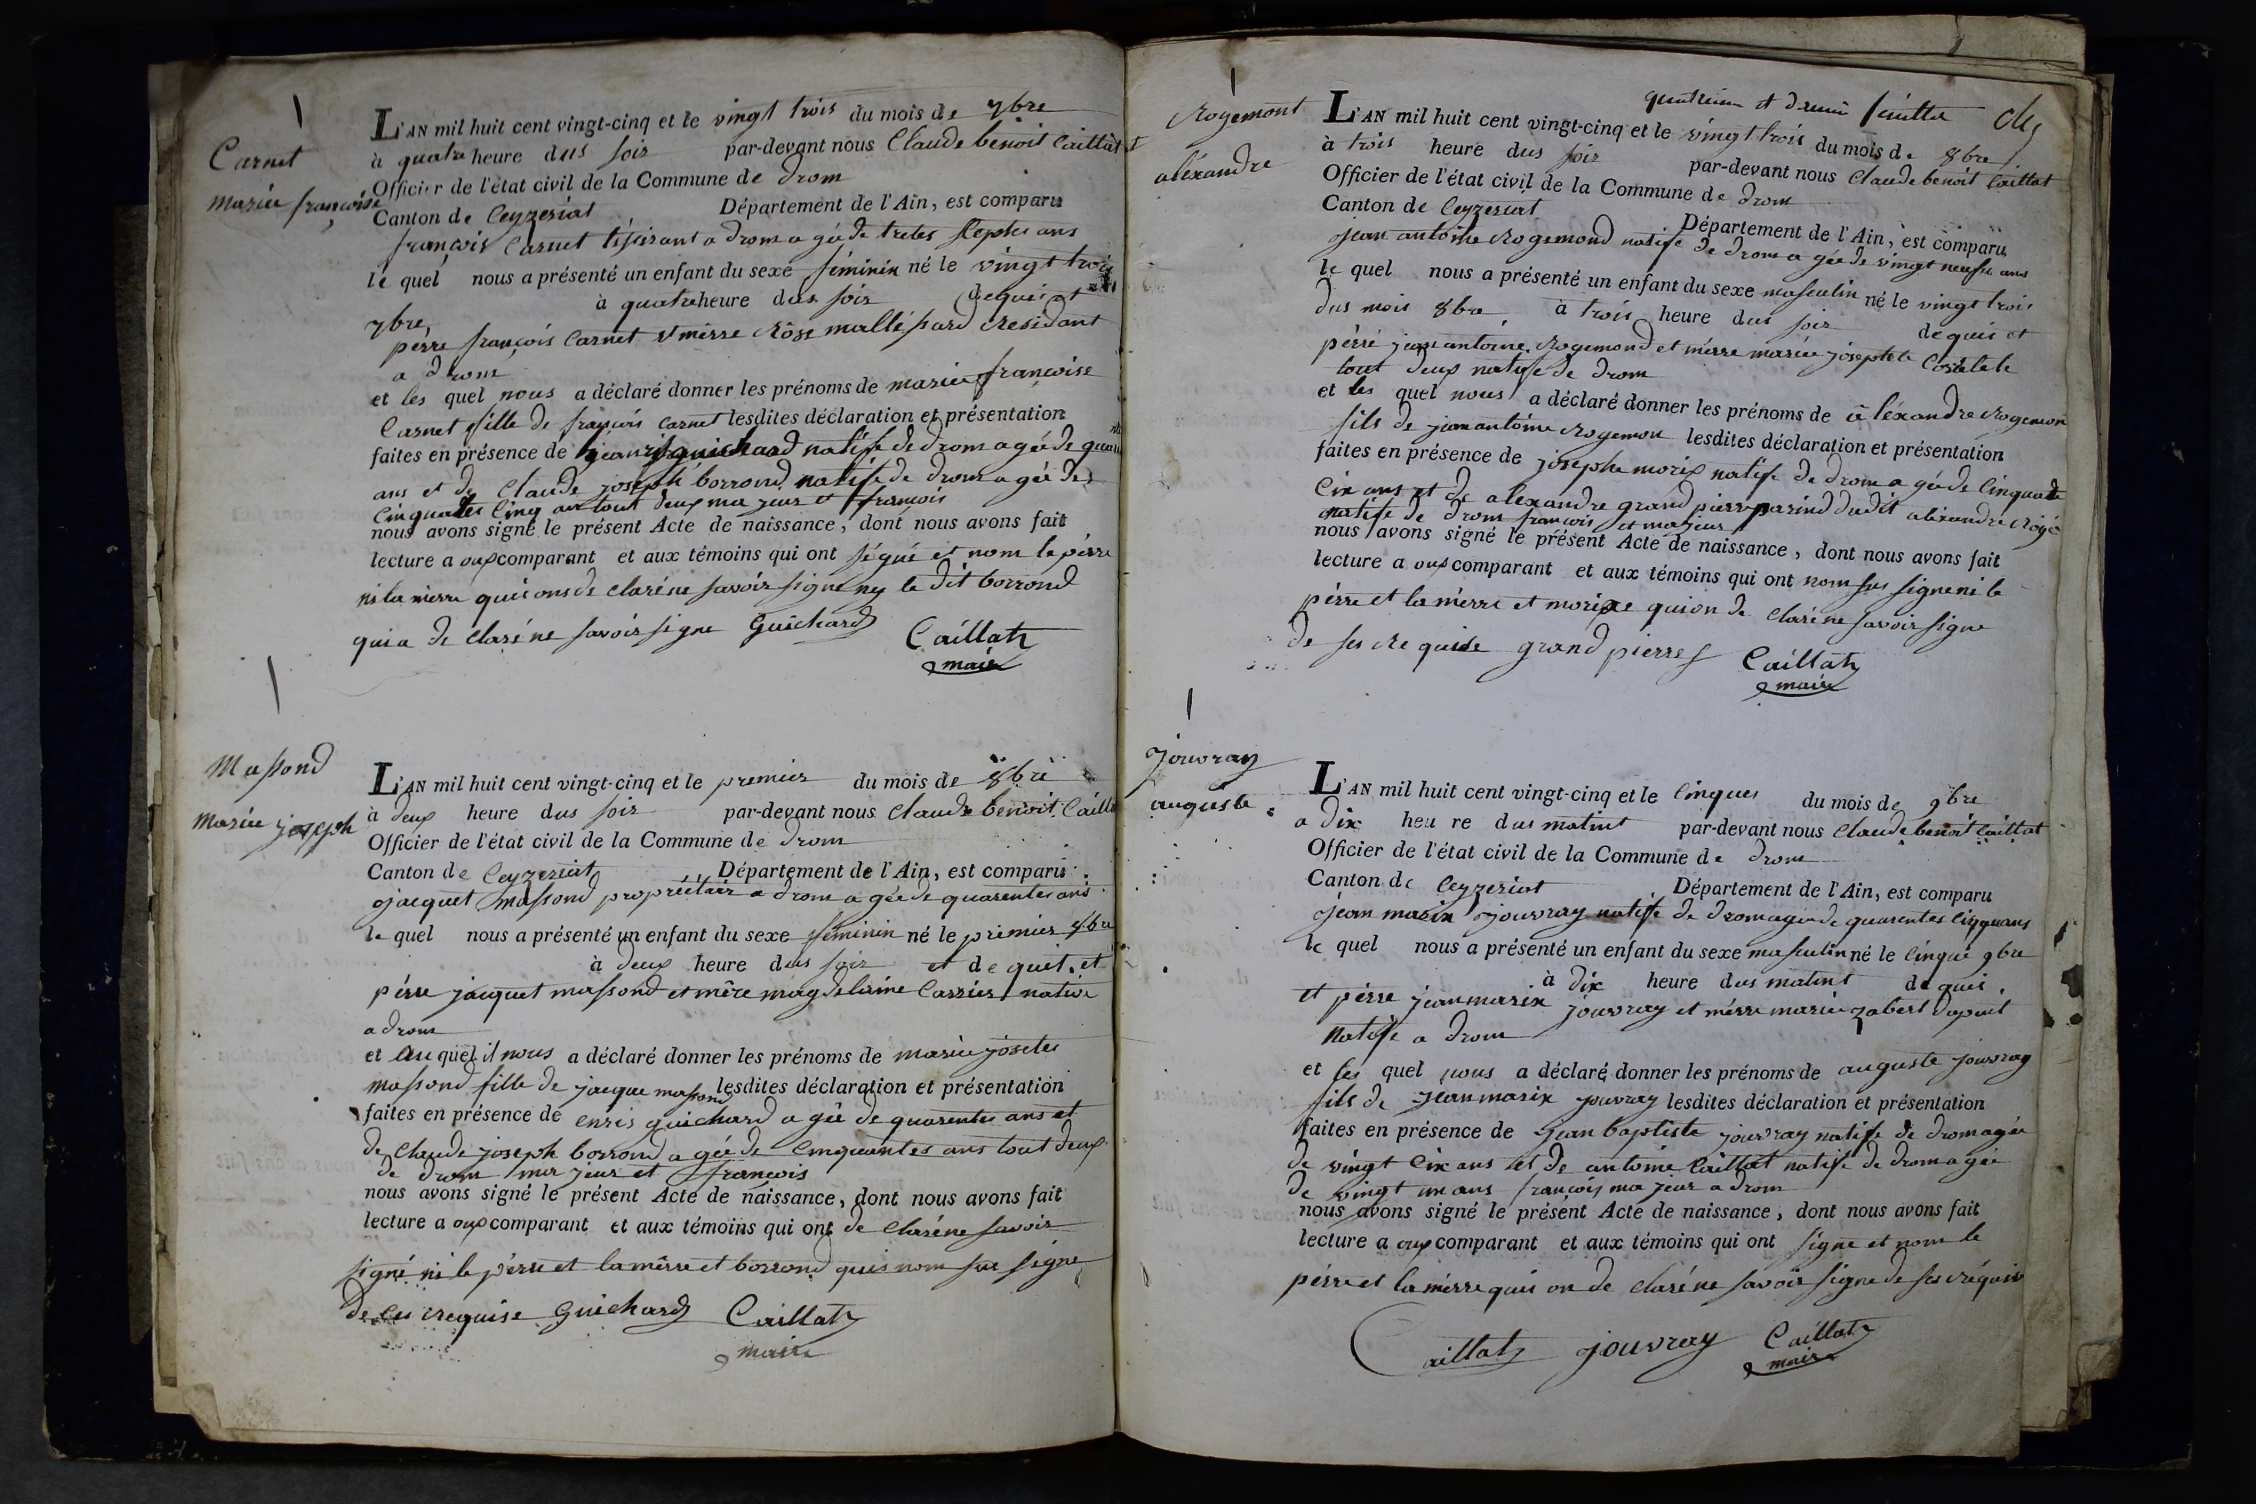 Carnet
Mariee françoise
L'AN mil huit cent vingt-cinq et le vingt trois du mois de 7bre
à quatre heure dus soir par-devant nous Claude benoit Caillat
Officier de l'état civil de la Commune de drom
Canton de Ceyzeriat Département de l'Ain, est comparu
françois Carnet tisirant a drom a gée de trentes septes ans
le quel nous a présenté un enfant du sexe féminin né le vingt trois
7bre à quatre heure dus soir dequei et
perre françois Carnet et merre Rôse mallessard Residant
a drom
et les quel nous a déclaré donner les prénoms de mariee françoise
Carnet fille de françois Carnet lesdites déclaration et présentation
faites en présence de guichard natife de drom a gée de
ans et de Claude joseph borrond natife de drom a gée de
Cinquantes Cinq ans tout deux ma jeur et françois
nous avons signé le présent Acte de naissance, dont nous avons fait
lecture a oux comparant et aux témoins qui ontségné et nom le pérre
ni la merre quei onsde claré ne savoir signe ny le dit borrond
qui a de claré ne savoir signe Guichard Caillat
maire
Massond
Mariee joseph
L'AN mil huit cent vingt-cinq et le premier du mois de 8bre
à deux heure dus soir par-devant nous Claude benoit Caillat
Officier de l'état civil de la Commune de drom
Canton de Ceyzeriat Département de l'Ain, est comparu
jacquet massond propriétair a drom a gée de quarentes ans
le quel nous a présenté un enfant du sexe féminin né le premier 8bre
à deux heure dus soir et de queit et
pérre jacquet massond et mêre magdelaine Carrier native
a drom
et au quel il nous a déclaré donner les prénoms de mariee josete
massond fille de jacque massond lesdites déclaration et présentation
faites en présence de enris guichard a gée de quarentes ans et
de Claude joseph borrond a gée de Cinquantes ans tout deux
de drom ma jeur et françois
nous avons signé le présent Acte de naissance, dont nous avons fait
lecture a oux comparant et aux témoins qui ont de claré ne savoir
signé ni le pérre et la mêrre et borrond quei nom sus signe
de ces requise Guichard Caillat
maire
quatrieme et dernier feuillet
Rogemont
aléxandre
L'AN mil huit cent vingt-cinq et le vingt trois du mois de 8bre
à trois heure dus soir par-devant nous Claude benoit Caillat
Officier de l'état civil de la Commune de drom
Canton de Ceyzeriat Département de l'Ain, est comparu
jean antoine Rogemond natife de drom a gée de vingt neufs ans
le quel nous a présenté un enfant du sexe masculin né le vingt trois
dus mois 8bre à trois heure dus soir dequis et
pérré jean antoine Rogemond et mérre mariee josephete Corbetete
tout deux natife de drom
et les quel nous a déclaré donner les prénoms de aléxandre Rogemon
fils de jean antoine Rogemon lesdites déclaration et présentation
faites en présence de josephe morix natife de drom a gée de Cinquate
Cix ans et de alexandre grand pierre parind dudit aléxandre Rogé
natife de drom françois et majeur
nous avons signé le présent Acte de naissance, dont nous avons fait
lecture a oux comparant et aux témoins qui ont nom sus signe ni le
pérre et la mérre et morixe quion de claré ne savoir signe
de ses re quise grand pierre Caillat
maire
Jouvray
auguiste
L'AN mil huit cent vingt-cinq et le Cinques du mois de 9bre
a dix heure dus matint par-devant nous Claude benoit Caillat
Officier de l'état civil de la Commune de drom
Canton de Ceyzeriat Département de l'Ain, est comparu
jean marix jouvray natife de drom agee de quarentes Cinquans
le quel nous a présenté un enfant du sexe masculin né le Cinque 9bre
à dix heure dus matint de quei
et pérre jean marix jouvray et mérre mariee zabert dupuit
natife a drom
et les quel nous a déclaré donner les prénoms de auguste jouvray
fils de jean marix jouvray lesdites déclaration et présentation
faites en présence de jean baptiste jouvray natife de drom agée
de vingt Cix ans et de antoine Caillat natife de drom a gée
de vingt un ans françois ma jeur a drom
nous avons signé le présent Acte de naissance, dont nous avons fait
lecture a oux comparant et aux témoins qui ont signe et nom le
pérre et la mérre quei on de claré ne savoir signe de ses réquis
Caillat jouvray Caillat
maire